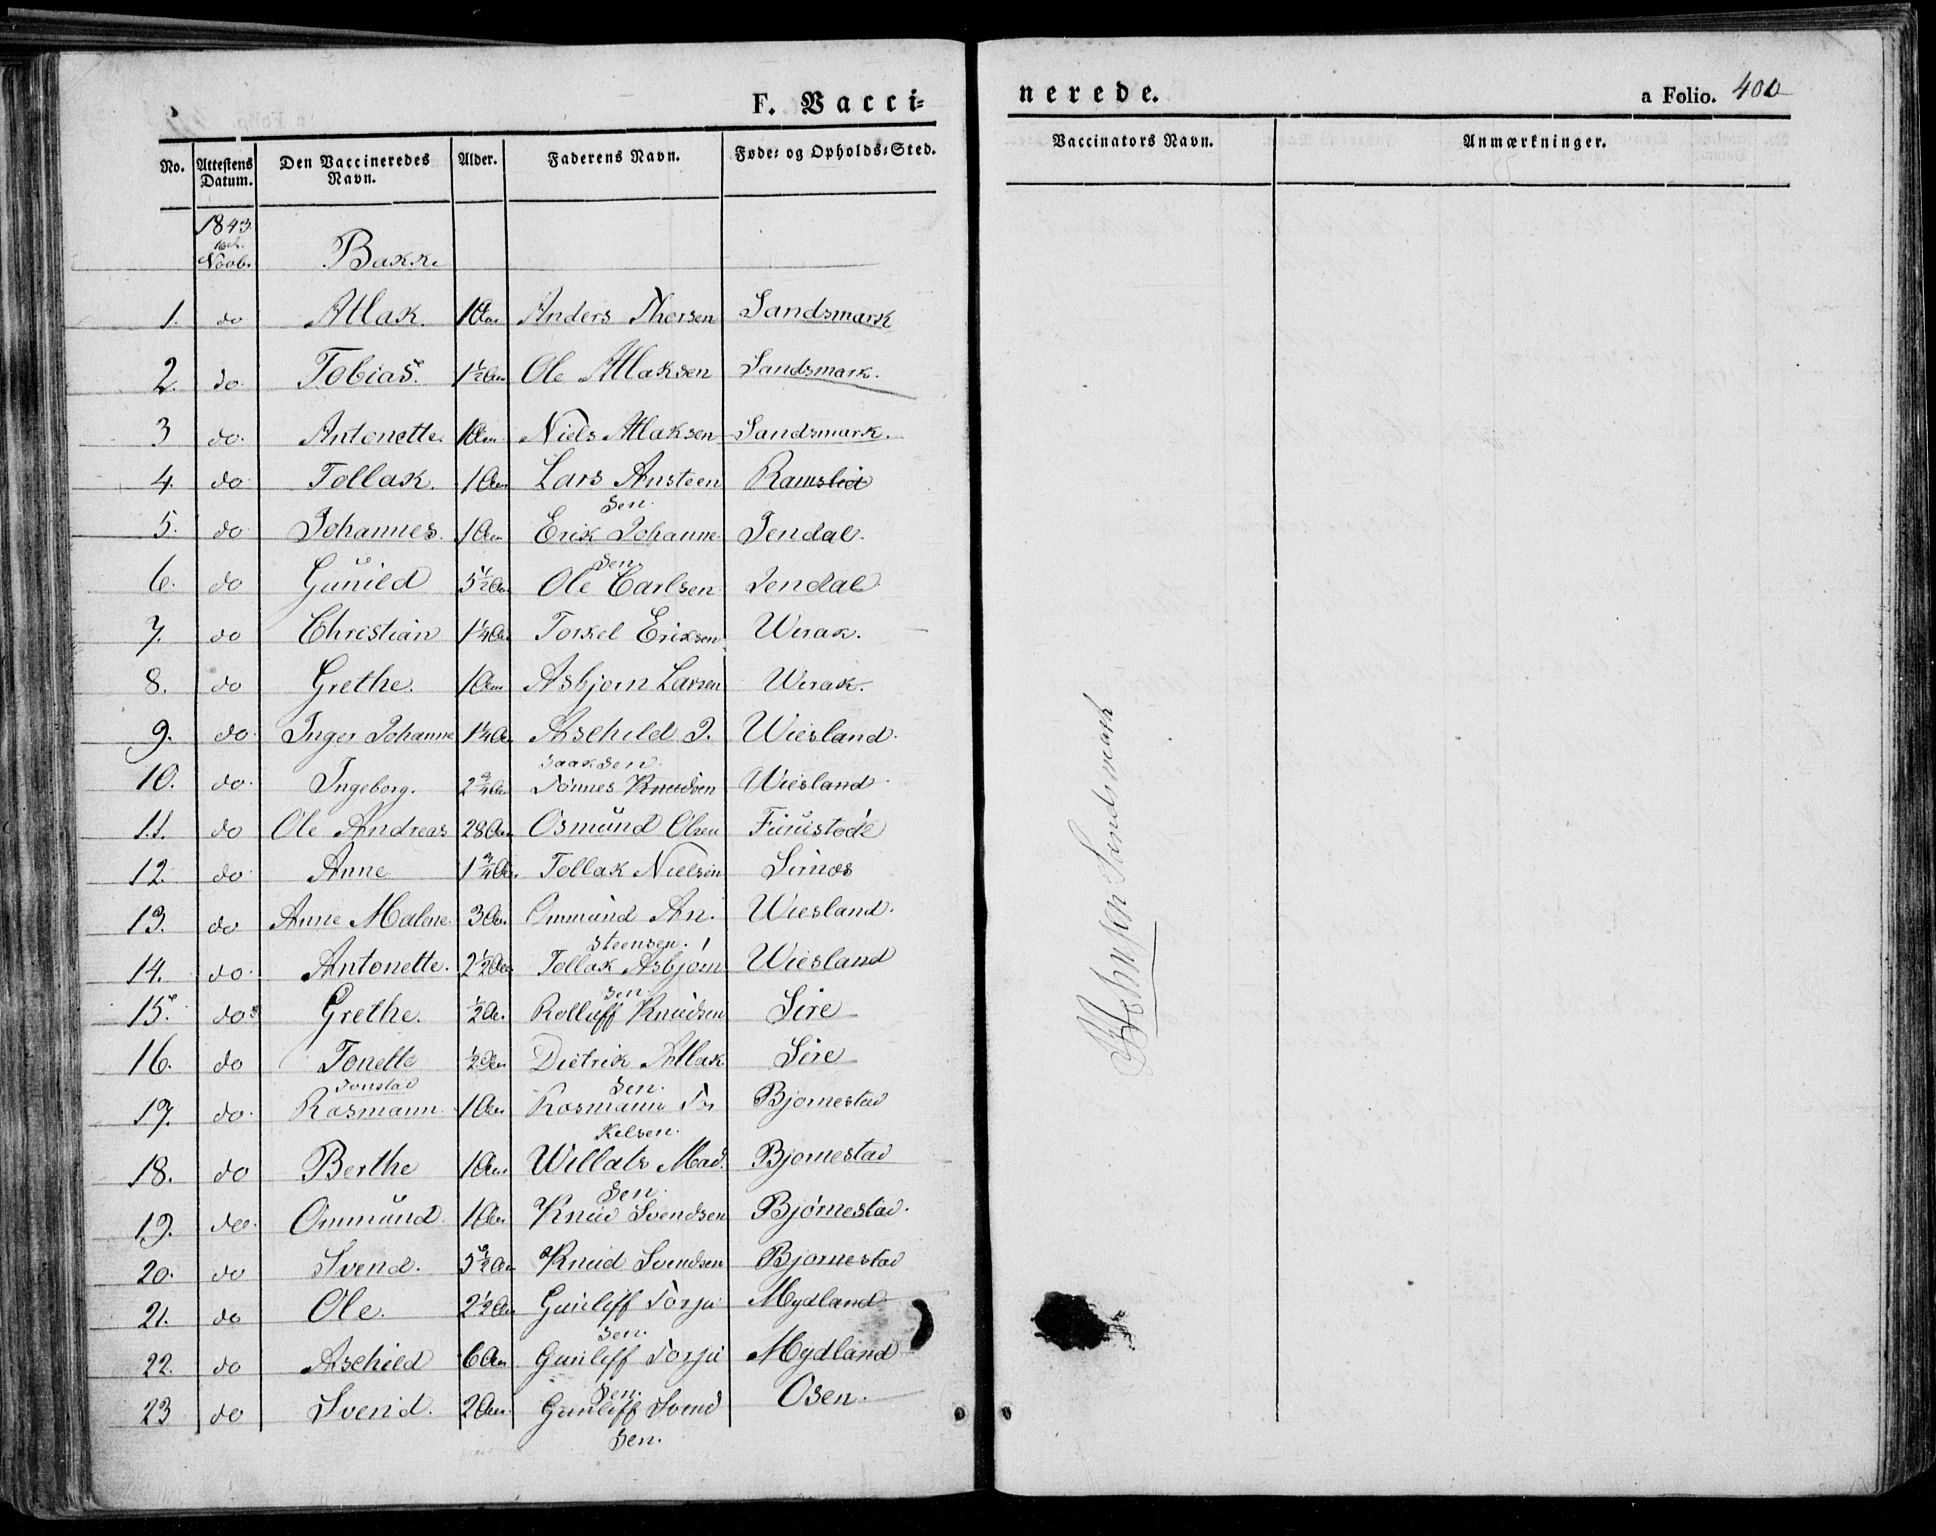 F. Vacci=
nerede.
a Folio. 400
No. Attestens Datum. Den Vaccineredes Navn. Alder. Faderens Navn. Føde= og Opholds=Sted. Vaccinators Navn. Anmærkninger.
1843.
16de Novb. Bakke
1. do Atlak. 1 Aar Anders Thorsen Sandsmark
2. do. Tobias. 1 1/2 Aar Ole Atlaksen Sandsmark.
3 do. Antonette. 1 Aar Niels Atlaksen Sandsmark.
4. do Tollak. 1 Aar Lars Ansteen
sen. Ramslid
5. do Johannes. 1 Aar Erik Johanne
sen. Jendal.
6. do Gunild 5 1/2 Aar Ole Carlsen Jendal
7. do Christian 1 1/4 Aar Torkel Eriksen Virak.
8. do Grethe. 1 Aar Asbjørn Larsen Virak.
9. do. Inger Johanne 1 1/4 Aar Aschild I.
saaksen. Wiesland.
10. do. Ingeborg. 2 3/4 Aar Tønnes Knudsen Wiesland
11. do Ole Andreas 28 Aar Osmund Olsen Furustøde
12. do. Anne 1 3/4 Aar Tollak Nielsen Sirnæs
13. do Anne Malene. 3 Aar Ommund An.
steensen. Wiesland.
14. do. Antonette. 2 1/2 Aar Tollak Asbjørn
sen. Wiesland
15. do. Grethe. 1/2 Aar Rolluff Knudsen Sire
16. do Tonette 1/2 Aar Dietrik Atlak
sen. Sire
17. do. Tonstad
Rasmann. 1 Aar Rosmann To
kelsen. Bjørnestad
18. do Berthe 1 Aar Willats Mad.
sen. Bjørnestad
19. do. Ommund. 1 Aar Knud Svendsen Bjørnestad.
20. do Svend. 5 1/2 Aar Knud Svendsen Bjørnestad
21. do Ole. 2 1/2 Aar Gunleff Torju
sen. Mydland
22. do Aschild 6 Aar Gunleff Torju
sen. Mydland
23 do Svend. 2 Aar. Gunleff Svend
sen. Osen.
Sandsmark